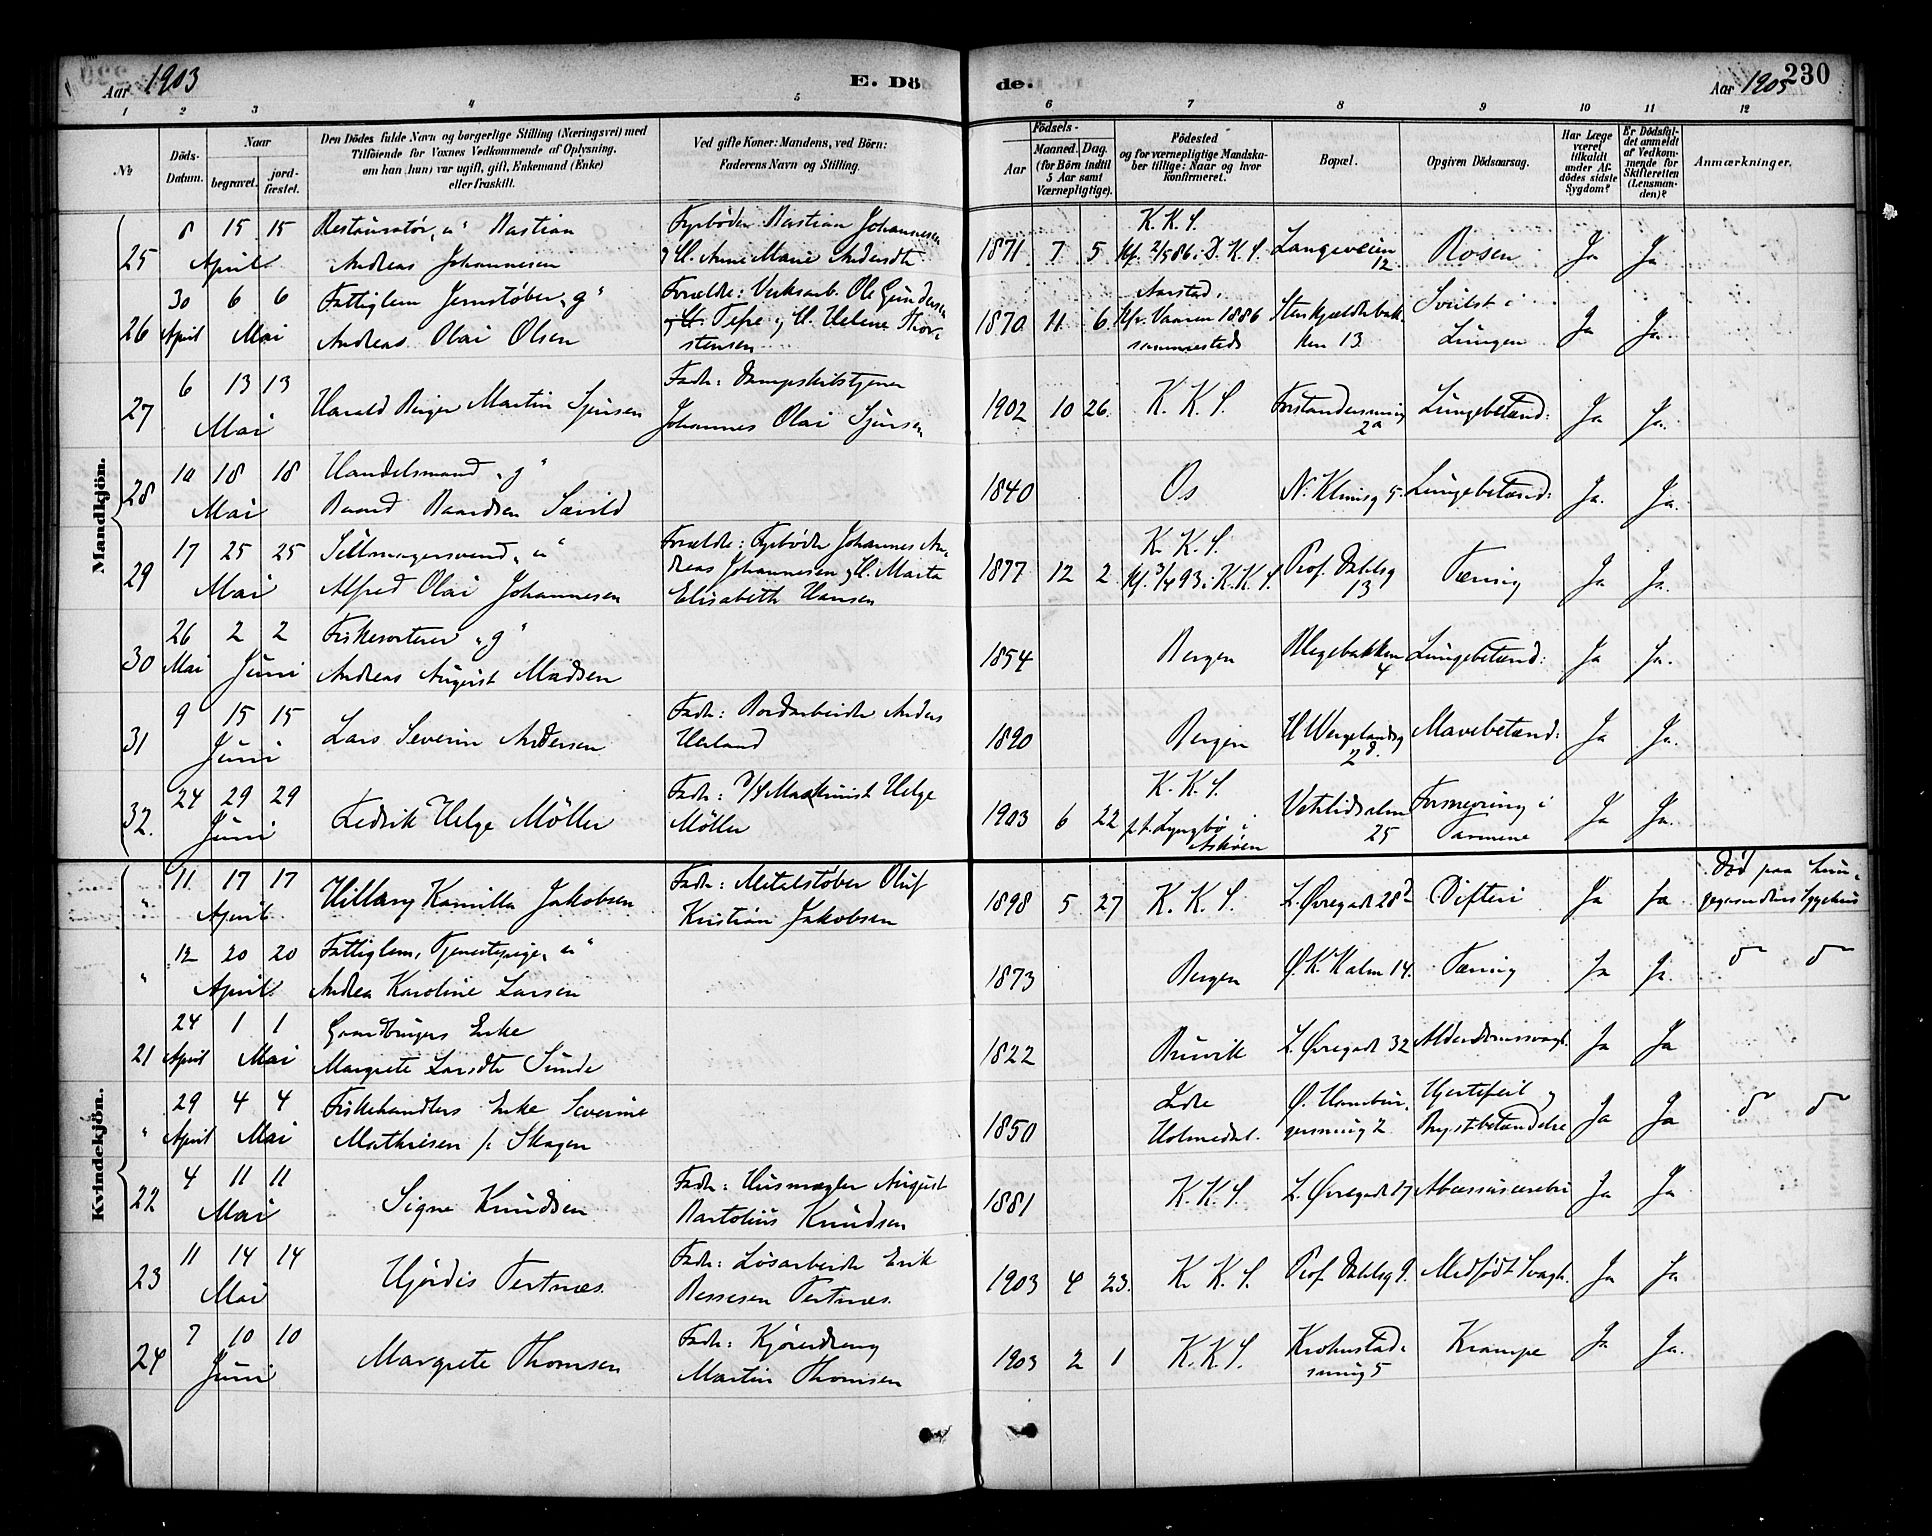 Aar 1903
E. Dö
de.
Aar 1903
230
1 2 3 4 5 6 7 8 9 10 11 12
No
Döds-Datum.
Naar
begravet.
jord-fæstet.
Den Dödes fulde Navn og borgerlige Stilling (Næringsvei) med
Tilföiende for Voxnes Vedkommende af Oplysning,
om han (hun) var ugift, gift, Enkemand (Enke)
eller fraskilt.
Ved gifte Koner: Mandens, ved Börn:
Faderens Navn og Stilling.
Födsels-
Aar
Maaned. Dag.
(for Börn indtil
5 Aar samt
Værnepligtige).
Födested
og for værnepligtige Mandska-
ber tillige: Naar og hvor
konfirmeret.
Bopæl.
Opgiven Dödsaarsag.
Har Læge
været
tilkaldt
under Af-
dödes sidste
Sygdom?
Er Dödsfal-
det anmeldt
af Vedkom-
mende for
Skifteretten
(Lensman-
den)?
Anmærkninger.
Mandkjön.
25
8 15 15
April
Restauratør, "u" Bastian
Andreas Johannesen
Fyrbøder Bastian Johannesen
og H. Anne Marie Andersdt
1871 7 5
K. K. S.
Kf. 2/5 86 i D. K. S.
Langeveien
12
Rosen
Ja Ja
26
30 6 6
April Mai
Fattiglem Jernstøber "g"
Andreas Olai Olsen
Forældre: Verksarb. Ole Gundersen
Tepe og H. Helene Thor-
stensen
1870 11 6
Aarstad,
Kfr. Vaaren 1886
sammesteds
Stenkjeldebak-
ken 13
Svulst i
Lungen
Ja Ja.
27
6 13 13
Mai
Harald Birger Martin Sjursen
Fader: Dampskibstjener
Johannes Olai Sjursen
1902 10 26.
K. K. S.
Forstandersmug
2a
Lungebetænd:
Ja Ja.
28
10 18 18
Mai
Handelsmand "g"
Baard Baardsen Særvold
1840
Os
N. Klosisg 5.
Lungebetænd:
Ja. Ja.
29
17 25 25
Mai
Seilmagersvend "u"
Alfred Olai Johannesen
Forældre: Fyrbøder Johannes An-
dreas Johannesen og H. Marta
Elisabeth Hansen
1877 12 2
K. K. S.
Kf. 3/4 93 i K. K. S.
Prof. Dahlsg
13
Tæring
Ja Ja.
30
26 2 2
Mai Juni
Fiskesorterer "g"
Andreas August Madsen
1854
Bergen
Blegebakken
4
Lungebetænd:
Ja Ja.
31
9 15 15
Juni
Lars Severin Andersen
Fader: Bordarbeider Anders
Herland
1890
Bergen
H Wergelandsg
2d.
Mavebetænd:
Ja Ja.
32.
24 29 29
Juni
Fredrik Helge Möller
Fader: D/S Maskinist Helge
Möller
1903 6 22
K. K. S.
p.t. Lyngbö i
Askøen
Vetrlidsalm
25
Forsnevring i
Tarmene
Ja Ja.
Kvindekjön.
"
11 17 17
April
Hillary Kamilla Jakobsen
Fader: Metalstøber Oluf
Kristian Jakobsen
1898 5 27
K. K. S.
L. Øvregade 28d
Difteri
Ja Ja
Död paa Lun-
gegaardens Sygehus
"
12 20 20
April
Fattiglem, Tjenestepige, "u"
Andrea Karoline Larsen
1873
Bergen
Ø. K. Kalm 14.
Tæring
Ja Ja.
do do
21
24 1 1
April Mai
Gaardbrugers Enke
Margrete Larsdtr Sunde
1822
Bruvik
L. Øvregade 32
Alderdomssvagh.
Ja Ja
"
29 4 4
April Mai
Fiskehandlers Enke Severine
Mathiesen f. Skagen
1850
Indre
Holmedal.
Ø. Hambur-
gersmug 2
Hjertefeil og
Brystbetændelse
Ja Ja
do do
22
4 11 11
Mai
Signe Knudsen
Fader: Husmægler August
Bartolius Knudsen
1881
K. K. S.
L. Øvregade 17
Abcessus cerebri
Ja Ja
23
11 14 14
Mai
Hjørdis Tertnæs.
Fader: Løsarbeider Erik
Bessesen Tertnæs.
1903 4 23.
K. K. S.
Prof. Dahlsg 9.
Medfødt Svagh.
Ja Ja
24
7 10 10
Juni
Margrete Thomsen
Fader: Kjøredreng
Martin Thomsen
1903 2 1
K. K. S.
Krohnstad-
smug 5
Krampe
Ja Ja.